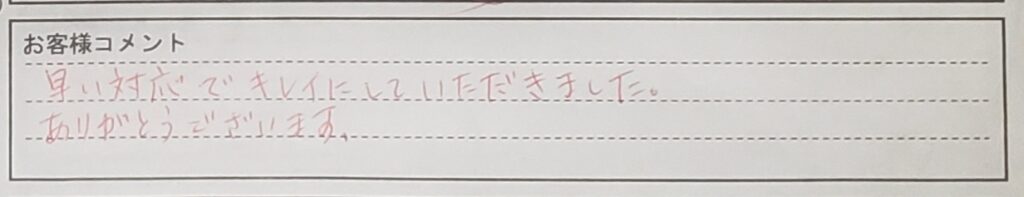 お客様コメント
早い対応でキレイにしていただきました。
ありがとうございます。